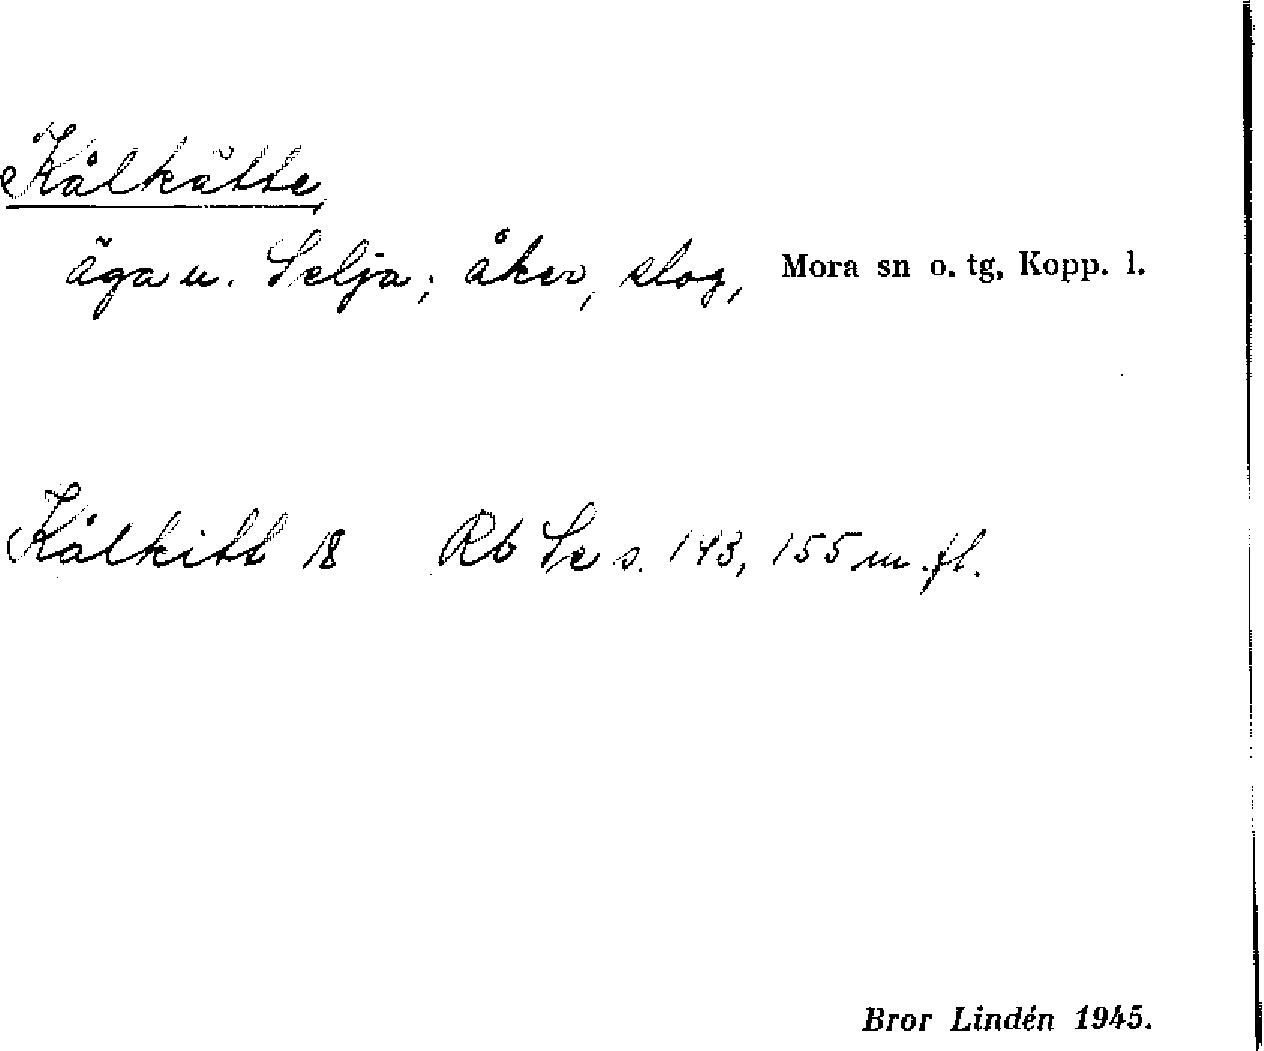 Kålkätte,
äga u. Selja; åker, slog, Mora sn o. tg, Kopp. l.
Kålkitt 18 Rb Se s. 143, 155 m.fl.
Bror Lindén 1945.